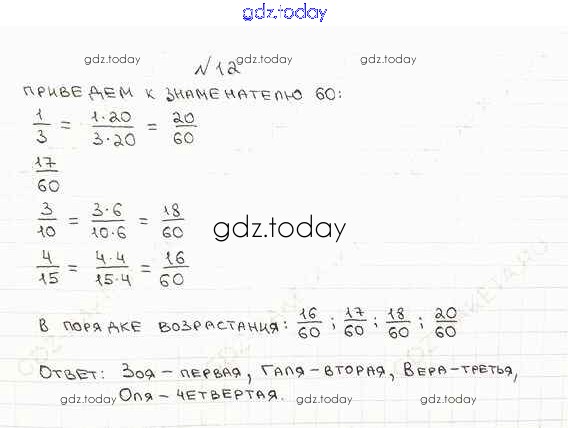 gdz.today
gdz.today gdz.today gdz.today
№12
ПРИВЕДЕМ К ЗНАМЕНАТЕЛЮ 60:
1/3 = 1·20/3·20 = 20/60
17/60
3/10 = 3·6/10·6 = 18/60
gdz.today
4/15 = 4·4/15·4 = 16/60
В ПОРЯДКЕ ВОЗРАСТАНИЯ: 16/60; 17/60; 18/60; 20/60
ОТВЕТ: ЗОЯ – ПЕРВАЯ, ГАЛЯ – ВТОРАЯ, ВЕРА – ТРЕТЬЯ,
ОЛЯ – ЧЕТВЕРТАЯ.
gdz.today gdz.today gdz.today
gdz.today